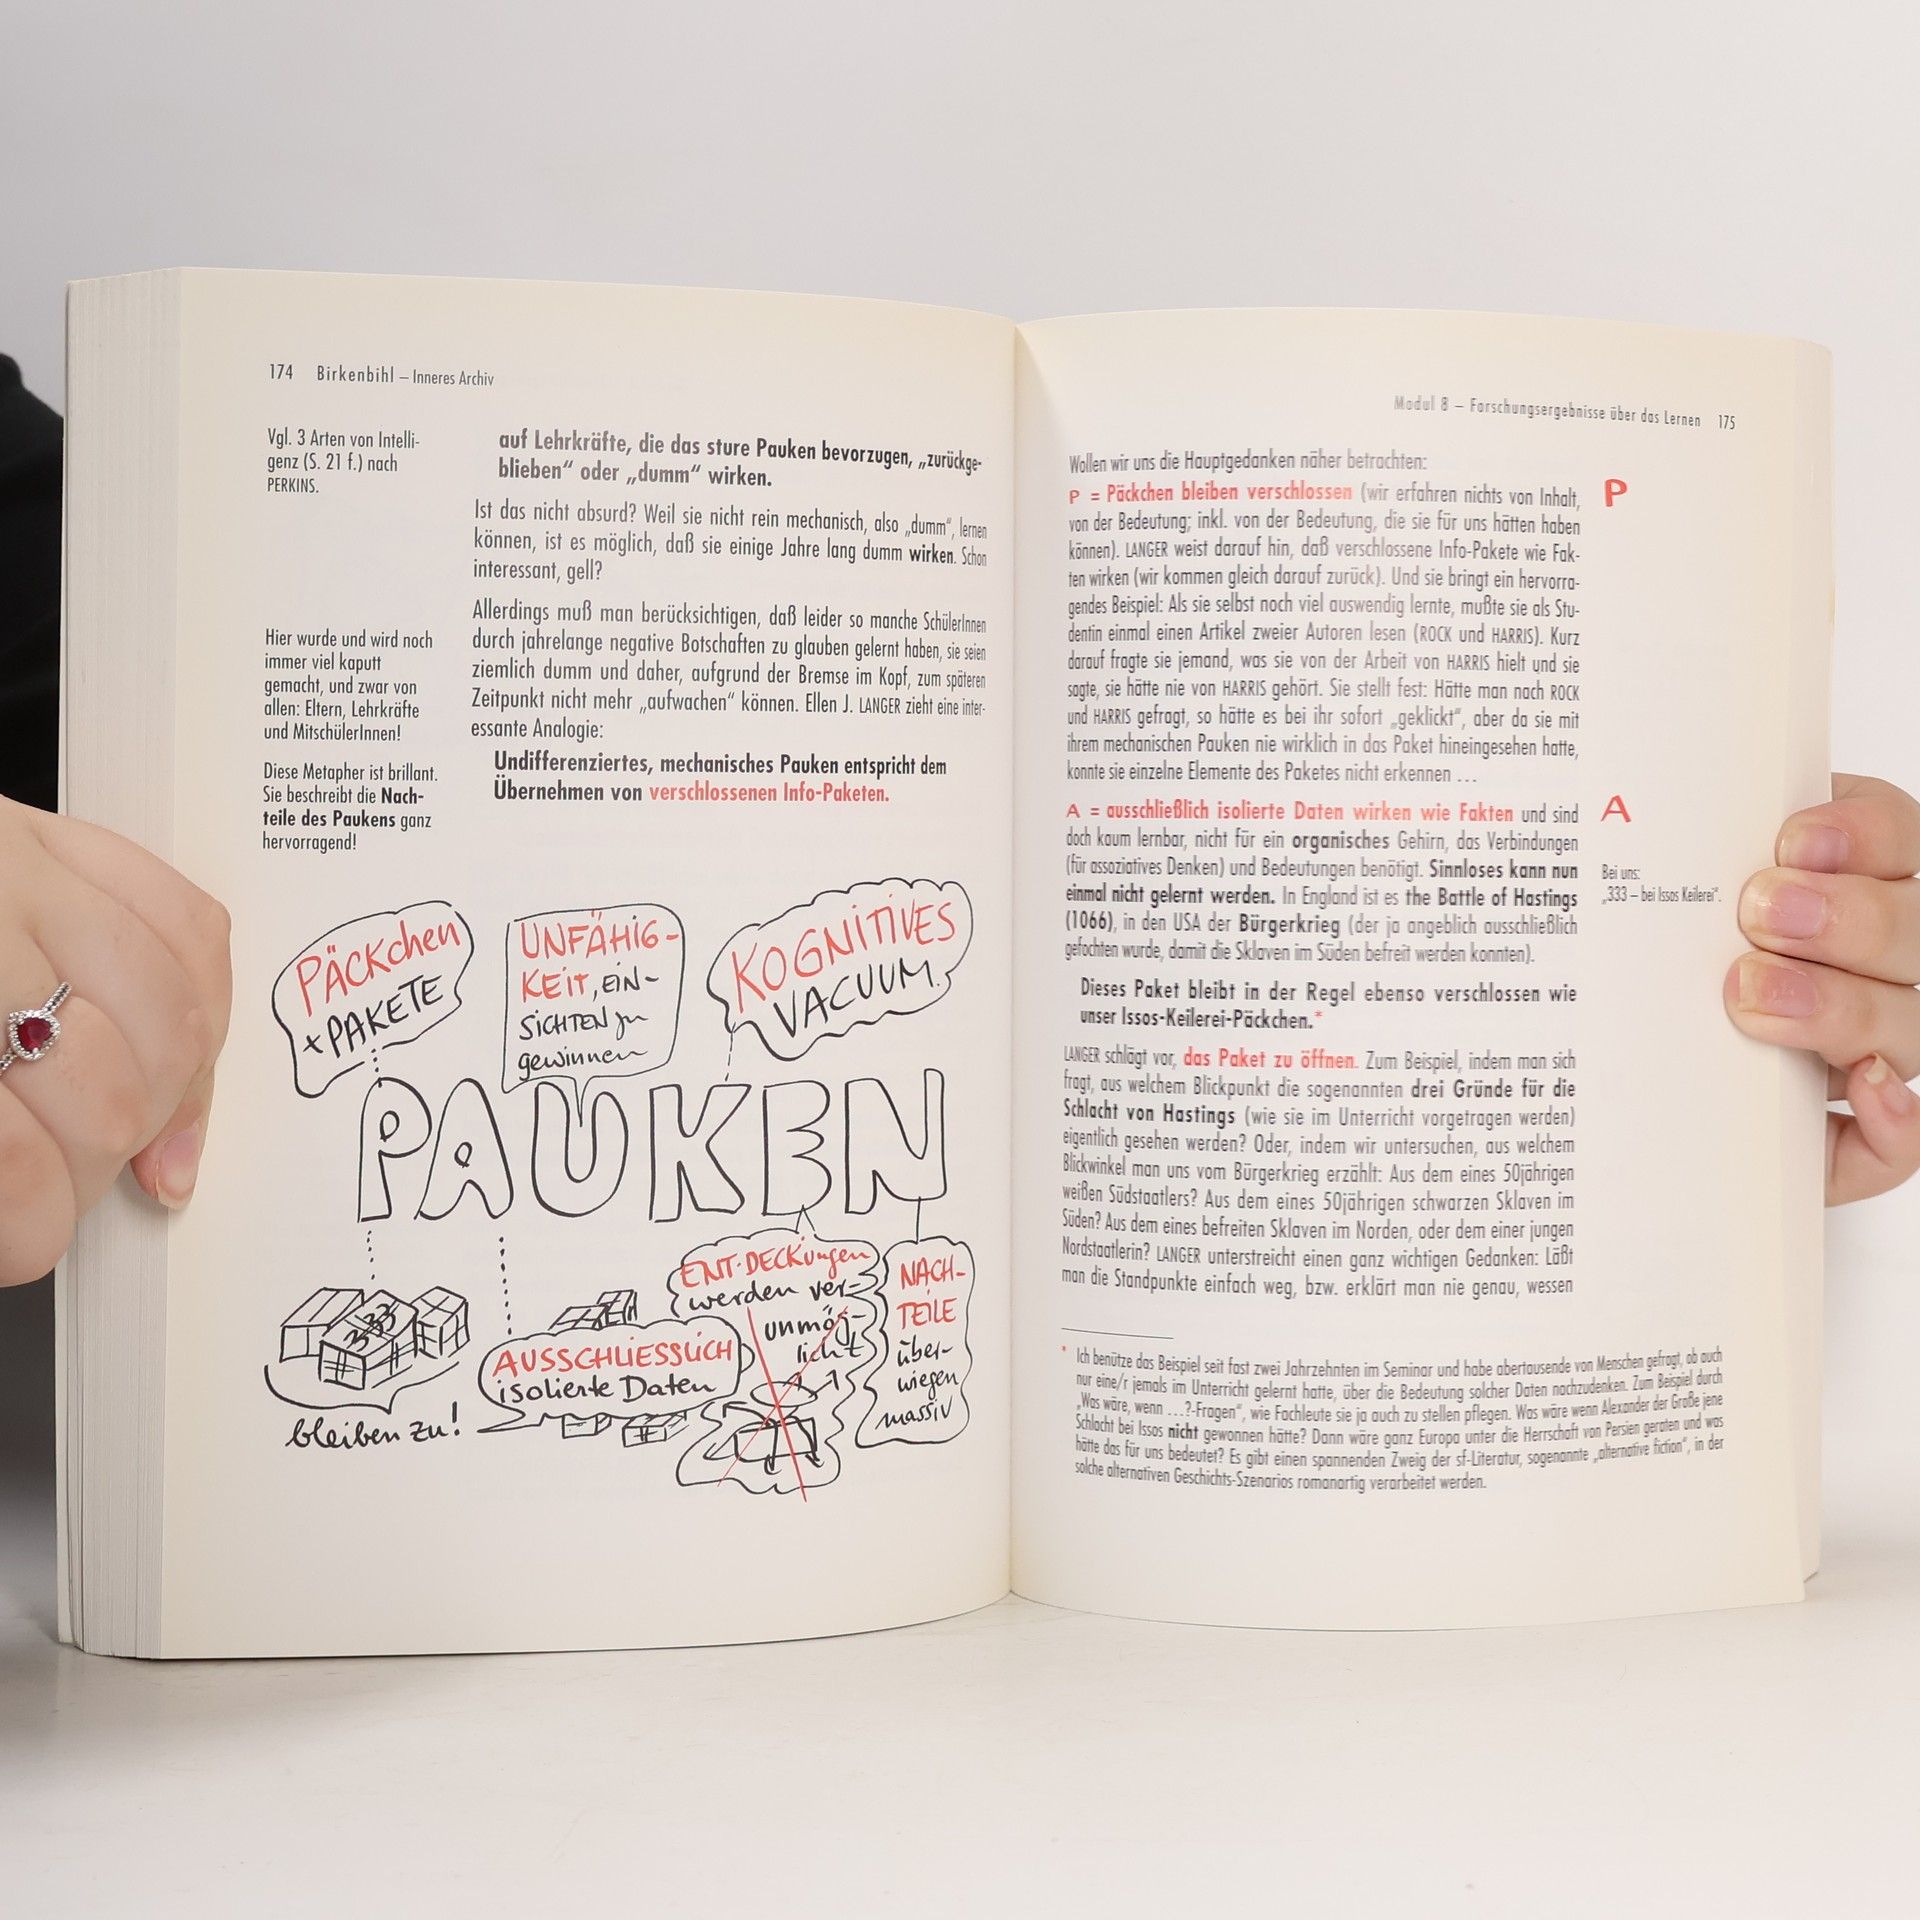 174 Birkenbihl – Inneres Archiv
Vgl. 3 Arten von Intelli-
genz (S. 21 f.) nach
PERKINS.
auf Lehrkräfte, die das sture Pauken bevorzugen, „zurückge-
blieben“ oder „dumm“ wirken.
Ist das nicht absurd? Weil sie nicht rein mechanisch, also „dumm“, lernen
können, ist es möglich, daß sie einige Jahre lang dumm wirken. Schon
interessant, gell?
Hier wurde und wird noch
immer viel kaputt
gemacht, und zwar von
allen: Eltern, Lehrkräfte
und MitschülerInnen!
Allerdings muß man berücksichtigen, daß leider so manche SchülerInnen
durch jahrelange negative Botschaften zu glauben gelernt haben, sie seien
ziemlich dumm und daher, aufgrund der Bremse im Kopf, zum späteren
Zeitpunkt nicht mehr „aufwachen“ können. Ellen J. LANGER zieht eine inter-
essante Analogie:
Diese Metapher ist brillant.
Sie beschreibt die Nach-
teile des Paukens ganz
hervorragend!
Undifferenziertes, mechanisches Pauken entspricht dem
Übernehmen von verschlossenen Info-Paketen.
PÄCKchen
+ PAKETE
UNFÄHIG-
KEIT, EIN-
SICHTEN zu
gewinnen
KOGNITIVES
VACUUM
PAUKEN
333
bleiben zu!
AUSSCHLIESSLICH
isolierte Daten
ENT-DECKungen
werden ver-
unmög-
licht
NACH-
TEILE
über-
wiegen
massiv
Modul 8 – Forschungsergebnisse über das Lernen 175
Wollen wir uns die Hauptgedanken näher betrachten:
P = Päckchen bleiben verschlossen (wir erfahren nichts von Inhalt,
von der Bedeutung; inkl. von der Bedeutung, die sie für uns hätten haben
können). LANGER weist darauf hin, daß verschlossene Info-Pakete wie Fak-
ten wirken (wir kommen gleich darauf zurück). Und sie bringt ein hervorra-
gendes Beispiel: Als sie selbst noch viel auswendig lernte, mußte sie als Stu-
dentin einmal einen Artikel zweier Autoren lesen (ROCK und HARRIS). Kurz
darauf fragte sie jemand, was sie von der Arbeit von HARRIS hielt und sie
sagte, sie hätte nie von HARRIS gehört. Sie stellt fest: Hätte man nach ROCK
und HARRIS gefragt, so hätte es bei ihr sofort „geklickt“, aber da sie mit
ihrem mechanischen Pauken nie wirklich in das Paket hineingesehen hatte,
konnte sie einzelne Elemente des Paketes nicht erkennen …
P
A = ausschließlich isolierte Daten wirken wie Fakten und sind
doch kaum lernbar, nicht für ein organisches Gehirn, das Verbindungen
(für assoziatives Denken) und Bedeutungen benötigt. Sinnloses kann nun
einmal nicht gelernt werden. In England ist es the Battle of Hastings
(1066), in den USA der Bürgerkrieg (der ja angeblich ausschließlich
gefochten wurde, damit die Sklaven im Süden befreit werden konnten).
A
Bei uns:
„333 – bei Issos Keilerei“.
Dieses Paket bleibt in der Regel ebenso verschlossen wie
unser Issos-Keilerei-Päckchen.*
LANGER schlägt vor, das Paket zu öffnen. Zum Beispiel, indem man sich
fragt, aus welchem Blickpunkt die sogenannten drei Gründe für die
Schlacht von Hastings (wie sie im Unterricht vorgetragen werden)
eigentlich gesehen werden? Oder, indem wir untersuchen, aus welchem
Blickwinkel man uns vom Bürgerkrieg erzählt: Aus dem eines 50jährigen
weißen Südstaatlers? Aus dem eines 50jährigen schwarzen Sklaven im
Süden? Aus dem eines befreiten Sklaven im Norden, oder dem einer jungen
Nordstaatlerin? LANGER unterstreicht einen ganz wichtigen Gedanken: Läßt
man die Standpunkte einfach weg, bzw. erklärt man nie genau, wessen
* Ich benütze das Beispiel seit fast zwei Jahrzehnten im Seminar und habe abertausende von Menschen gefragt, ob auch
nur eine/r jemals im Unterricht gelernt hatte, über die Bedeutung solcher Daten nachzudenken. Zum Beispiel durch
„Was wäre, wenn …?-Fragen“, wie Fachleute sie ja auch zu stellen pflegen. Was wäre wenn Alexander der Große jene
Schlacht bei Issos nicht gewonnen hätte? Dann wäre ganz Europa unter die Herrschaft von Persien geraten und was
hätte das für uns bedeutet? Es gibt einen spannenden Zweig der sf-Literatur, sogenannte „alternative fiction“, in der
solche alternativen Geschichts-Szenarios romanartig verarbeitet werden.